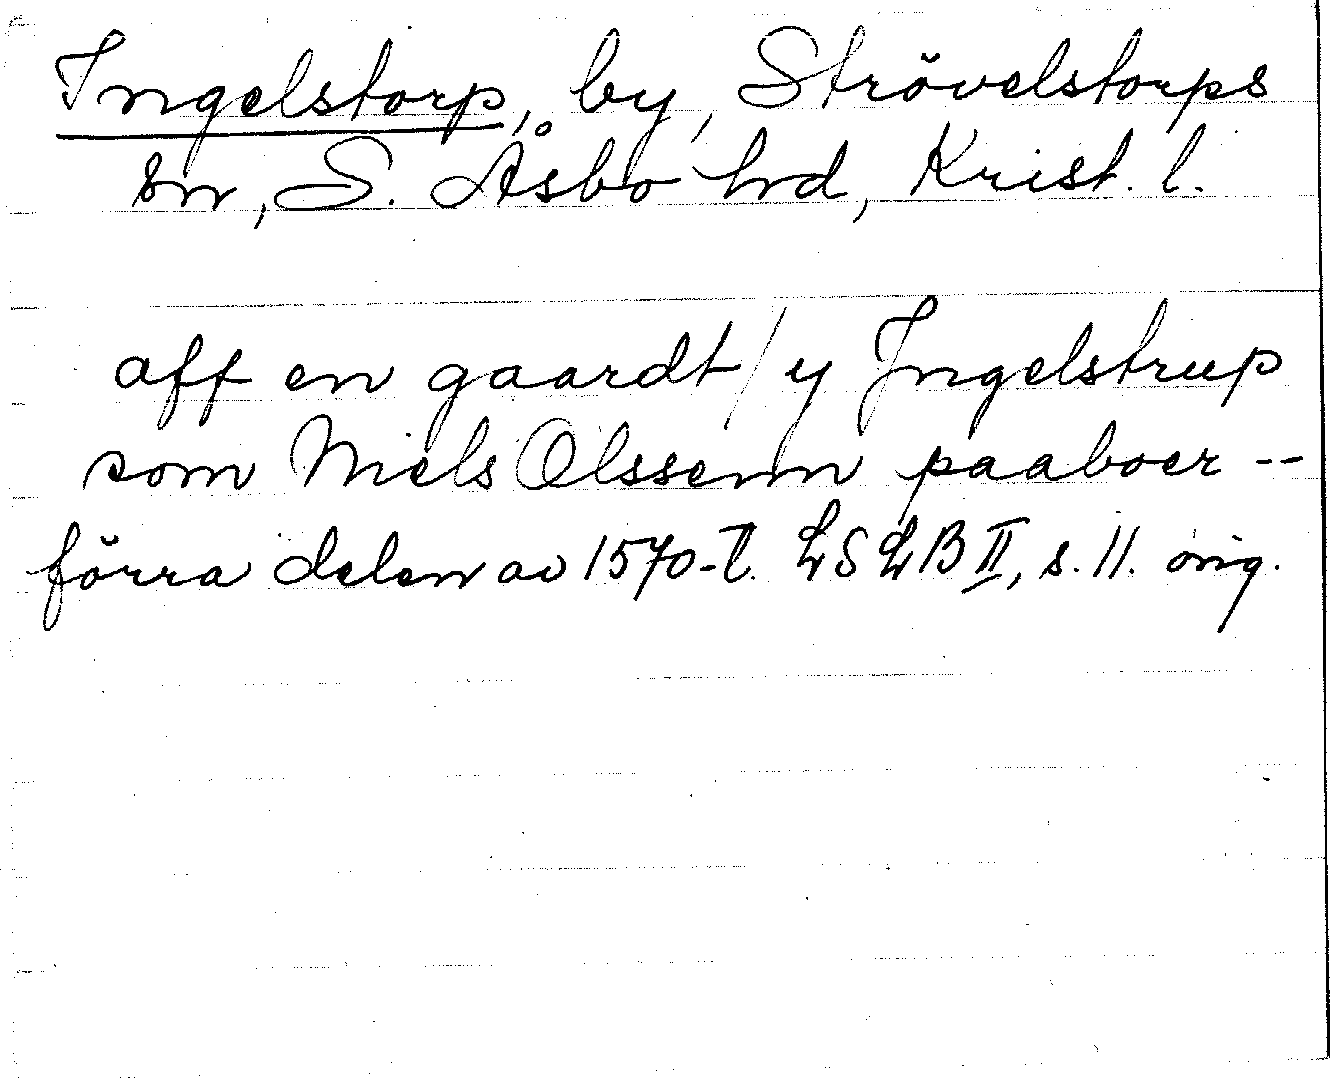 Ingelstorp, by, Strövelstorps
sn, S. Åsbo hrd, Krist. l.
aff en gaardt / y Jngelstrup
som Niels Olssenn paaboer --
förra delen av 1570-t. LSLB II, s. 11. orig.